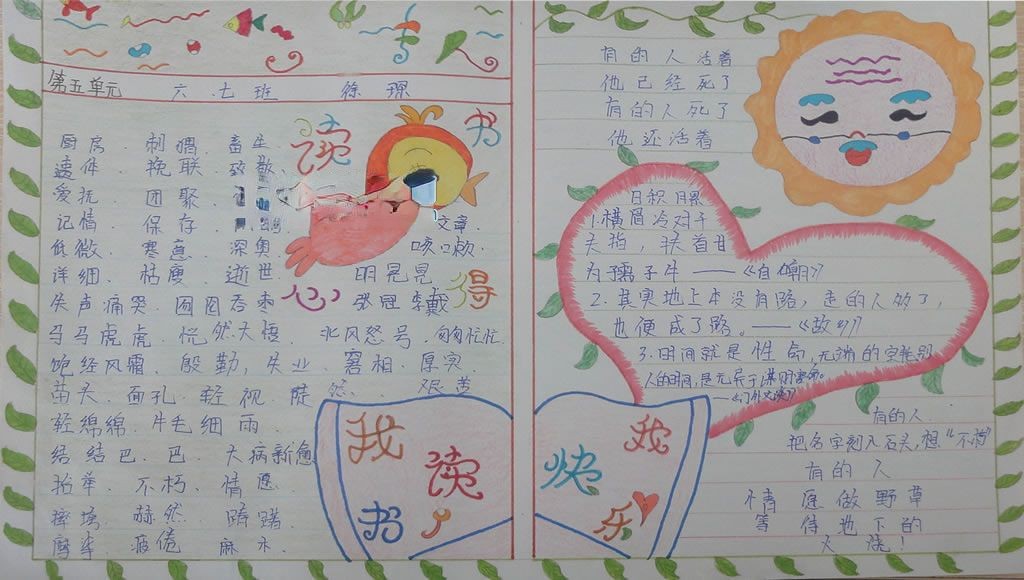 第五单元 六.七班 徐琛
读书心得
厨房、刺猬、畜生
遗体、挽联、致敬
爱抚、团聚、
记情、保存、 文章、
低微、寒意、深奥、 咳嗽、
详细、枯瘦、逝世、 明晃晃
失声痛哭、囫囵吞枣 张冠李戴
马马虎虎、恍然大悟、北风怒号、匆匆忙忙、
饱经风霜、殷勤,失业、窘相、厚实
苗头、面孔、轻视、陡然、 艰苦
轻绵绵、牛毛细雨、
结结巴、巴、大病新愈
抬举、不朽、情愿、
摔场、赫然、踌躇、
摩拳、疲倦、麻木、
我读书
我快乐
有的人活着
他已经死了
有的人死了
他还活着
日积月累
1.横眉冷对千
夫指,扶首甘
为孺子牛——《自嘲》
2.其实地上本没有路,走的人多了,
也便成了路。——《故乡》
3.时间就是性命,无端的空耗别
人的时间,是无异于谋财害命。
——《门外文谈》
有的人
把名字刻入石头,想“不朽”
有的人
情愿做野草
等待地下的
火烧!